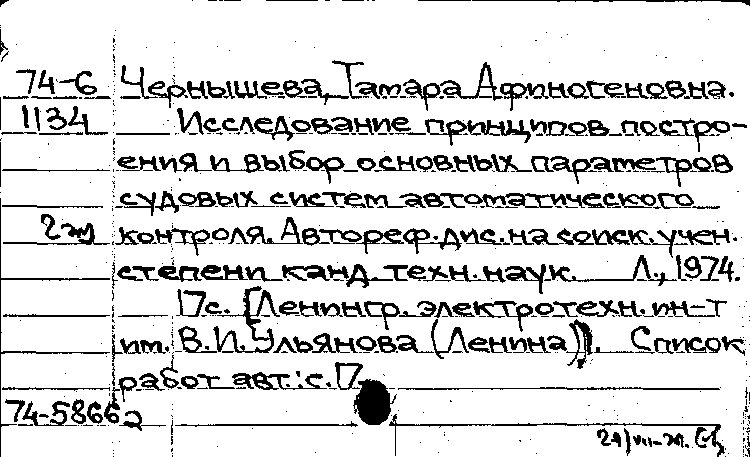 74-6 Чернышева, Тамара Афиногеновна.
1134 Исследование принципов постро-
ения и выбор основных параметров
судовых систем автоматического
2 эк контроля. Автореф. дис. на соиск. учен.
степени канд. техн. наук. Л., 1974.
17с. (Ленингр. электротехн. ин-т
им. В.И. Ульянова (Ленина)). Список
работ авт.: с. 17
74-58662